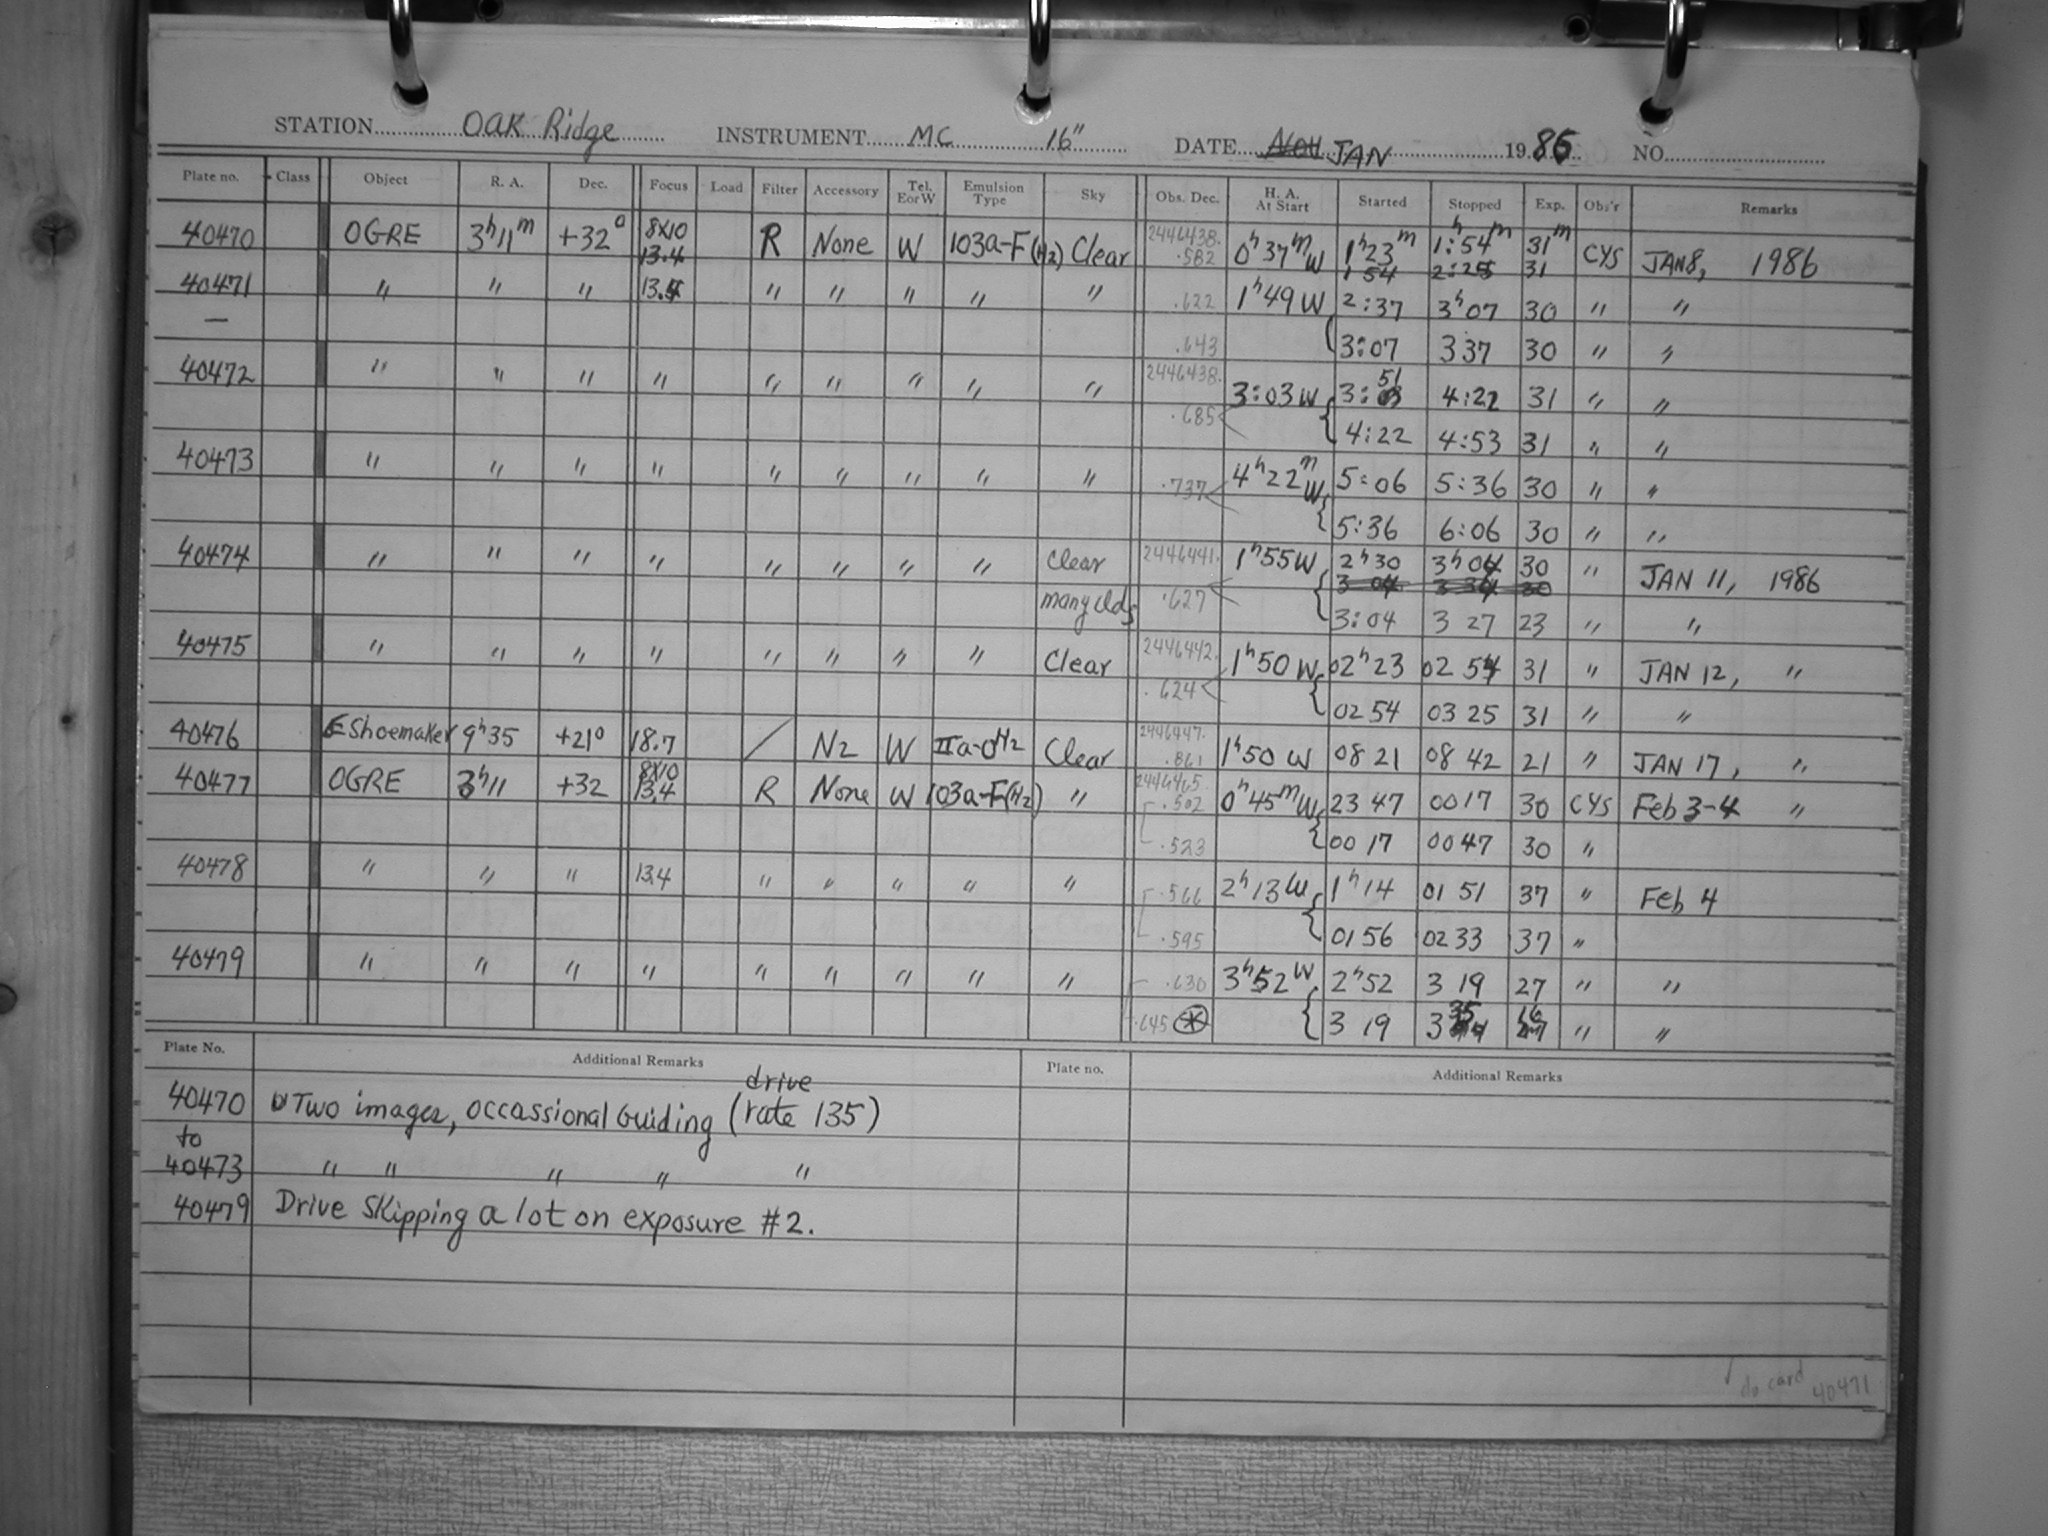 STATION Oak Ridge INSTRUMENT MC 16" DATE Nov JAN 1986 NO.
Plate no. Class Object R. A. Dec. Focus Load Filter Accessory Tel. E or W Emulsion Type Sky Obs. Dec. H. A. At Start Started Stopped Exp. Obs'r Remarks
40470 OGRE 3h11m +32° 8x10 13.4 R None W 103a-F(H2) Clear 2446438. .582 0h37m W 1h23m 1h:54m 31m CYS JAN 8, 1986
1 54 2:25 31
40471 " " " 13.4 " " " " " .622 1h49 W 2:37 3h07 30 " "
— .643 3:07 3 37 30 " "
40472 " " " " " " " " " 2446438. 3:03 W 3:51 4:22 31 " "
.685 4:22 4:53 31 " "
40473 " " " " " " " " " .737 4h22m W 5:06 5:36 30 " "
5:36 6:06 30 " "
40474 " " " " " " " " Clear 2446441. 1h55 W 2h30 3h04 30 " JAN 11, 1986
3 04 3 34 30
many clds .627 3:04 3 27 23 " "
40475 " " " " " " " " Clear 2446442. 1h50 W 02h23 02 54 31 " JAN 12, "
.624 02 54 03 25 31 " "
40476 Shoemaker 9h35 +21° 18.7 / N2 W IIa-O H2 Clear 2446447. .861 1h50 W 08 21 08 42 21 " JAN 17, "
40477 OGRE 3h11 +32 8x10 13.4 R None W 103a-F(H2) " 2446465. .502 0h45m W 23 47 00 17 30 CYS Feb 3-4 "
.523 00 17 00 47 30 "
40478 " " " 13.4 " " " " " .566 2h13 W 1h14 01 51 37 " Feb 4
.595 01 56 02 33 37 "
40479 " " " " " " " " " .630 3h52 W 2h52 3 19 27 " "
.645 * 3 19 3 35 16 " "
Plate No. Additional Remarks Plate no. Additional Remarks
drive
40470 Two images, occassional Guiding (rate 135)
to
40473 " " " " "
40479 Drive Skipping a lot on exposure #2.
do card 40471